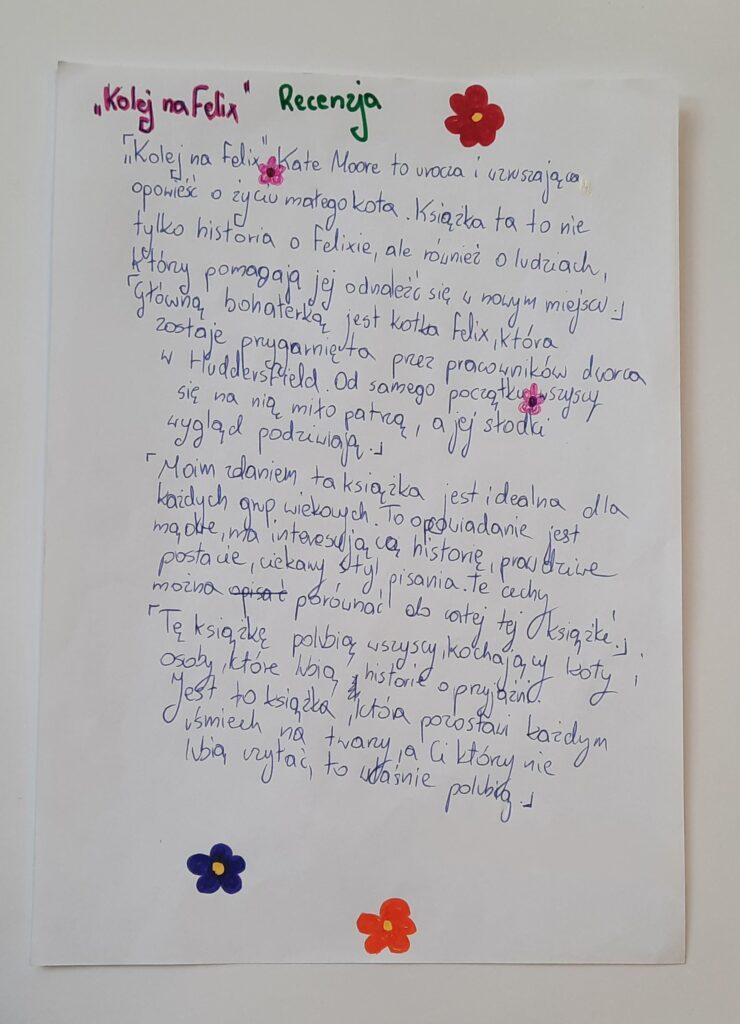 „Kolej na Felix” Recenzja
„Kolej na Felix” Kate Moore to urocza i wzruszająca
opowieść o życiu małego kota. Książka ta to nie
tylko historia o Felixie, ale również o ludziach,
którzy pomagają jej odnaleźć się w nowym miejscu.
Główną bohaterką jest kotka Felix, która
zostaje przygarnięta przez pracowników dworca
w Huddersfield. Od samego początku wszyscy
się na nią miło patrzą, a jej słodki
wygląd podziwiają.
Moim zdaniem ta książka jest idealna dla
każdych grup wiekowych. To opowiadanie jest
mądre, ma interesującą historię, prawdziwe
postacie, ciekawy styl pisania. Te cechy
można opisać porównać do całej tej książki.
Tę książkę polubią wszyscy, kochający koty i
osoby, które lubią historie o przyjaźni.
Jest to książka, która pozostawi każdym
uśmiech na twarzy, a Ci którzy nie
lubią czytać, to właśnie polubią.